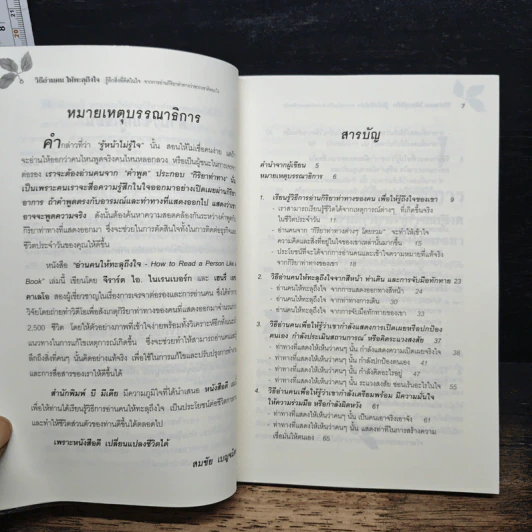 6 วิธีอ่านคน ให้ทะลุถึงใจ
หมายเหตุบรรณาธิการ
คำกล่าวที่ว่า "รู้หน้าไม่รู้ใจ" นั้น สอนให้ไม่เชื่อคนง่าย
จะอ่านให้ออกว่าคนไหนพูดจริงคนไหนหลอกลวง หรือเป็นผู้ชนะในการ
ต่อรอง เราจะต้องอ่านคนจาก "คำพูด" ประกอบ "กิริยาท่าทาง" นั้น
เป็นเพราะคนเราจะสื่อความรู้สึกในใจออกมาอย่างเปิดเผยผ่านกิริยา
อาการ ถ้าคำพูดตรงกับอารมณ์และท่าทางที่แสดงออกไป แสดงว่า
อาจจะพูดความจริง ดังนั้นต้องค้นหาความสอดคล้องกันระหว่างคำพูดกับ
กิริยาท่าทางที่แสดงออกมา ซึ่งจะช่วยในการตัดสินใจทั้งในการติดต่อธุรกิจ
ชีวิตประจำวันของคุณให้ดีขึ้น
หนังสือ "อ่านคนให้ทะลุถึงใจ - How to Read a Person Like a
Book" เล่มนี้ เขียนโดย จีราร์ด ไอ. ไนเรนเบอร์ก และ เฮนรี่ เอช
คาเลโอ สองผู้เชี่ยวชาญในเรื่องการเจรจาต่อรองและการอ่านคน ซึ่งได้ทำ
วิจัยโดยถ่ายทำวิดีโอเพื่อสังเกตุกิริยาท่าทางของคนที่แสดงออกมาจำนวน
2,500 ชีวิต โดยให้ตัวอย่างภาพที่เข้าใจง่ายพร้อมทั้งวิเคราะห์ลึกซึ้งและ
แนวทางในการแก้ไขเหตุการณ์เกิดขึ้น ซึ่งจะช่วยทำให้สามารถอ่านคน
ลึกถึงสิ่งที่คนๆ นั้นคิดอย่างแท้จริง เพื่อใช้ในการแก้ไขและปรับปรุงการทำงาน
และการสื่อสารของเราให้ดีขึ้นได้
สำนักพิมพ์ บี มีเดีย มีความภูมิใจที่ได้นำเสนอ หนังสือดี
เพื่อให้ท่านได้เรียนรู้วิธีการอ่านคนให้ทะลุถึงใจ เป็นประโยชน์ต่อชีวิตการงาน
และทำให้ชีวิตส่วนตัวของท่านดีขึ้นได้ตลอดไป
เพราะหนังสือดี เปลี่ยนแปลงชีวิตได้
สมชัย
7
สารบัญ
คำนำจากผู้เขียน 5
หมายเหตุบรรณาธิการ 6
1. เรียนรู้วิธีการอ่านกิริยาท่าทางของคน เพื่อให้รู้ถึงใจของเขา 9
- เราสามารถเรียนรู้ชีวิตได้จากเหตุการณ์ต่างๆ ที่เกิดขึ้นจริง
ในชีวิตประจำวัน 11
- อ่านคนจาก "กิริยาท่าทางต่างๆ โดยรวม" จะทำให้เข้าใจ
ความคิดและสิ่งที่อยู่ในใจของเขาเหล่านั้นมากขึ้น 15
- ประโยชน์ที่จะได้จากการอ่านคนและเข้าใจความหมายที่แท้จริง
จากกิริยาท่าทางของเขา 18
2. วิธีอ่านคนให้ทะลุถึงใจจากสีหน้า ท่าเดิน และการจับมือทักทาย 23
- อ่านคนให้ทะลุถึงใจ จากการแสดงออกทางสีหน้า 24
- อ่านคนให้ทะลุถึงใจ จากท่าทางการเดิน 30
- อ่านคนให้ทะลุถึงใจ จากการจับมือทักทายของเขา
3. วิธีอ่านคนเพื่อให้รู้ว่าเขากำลังแสดงการเปิดเผยหรือปกป้อง
ตนเอง กำลังประเมินสถานการณ์ หรือคิดระแวงสงสัย 37
- ท่าทางที่แสดงให้เห็นว่าคนๆ นั้น กำลังแสดงความเปิดเผยจริงใจ
- ท่าทางที่แสดงให้เห็นว่าคนๆ นั้น กำลังปกป้องตนเอง
- ท่าทางที่แสดงให้เห็นว่าคนๆ นั้น กำลังคิดอะไรอยู่
- ท่าทางที่แสดงให้เห็นว่าคนๆ นั้น ระแวงสงสัย ซ่อนเร้นอะไรในใจ
4. วิธีอ่านคนเพื่อให้รู้ว่าเขากำลังเตรียมพร้อม มีความมั่นใจ
ให้ความร่วมมือ หรือกำลังผิดหวัง 61
- ท่าทางที่แสดงให้เห็นว่าคนๆ นั้น เป็นคนเอาจริงเอาจัง
- ท่าทางที่แสดงให้เห็นว่าคนๆ นั้น แสดงท่าทีในการสร้างความ
เชื่อมั่นให้ตนเอง 65